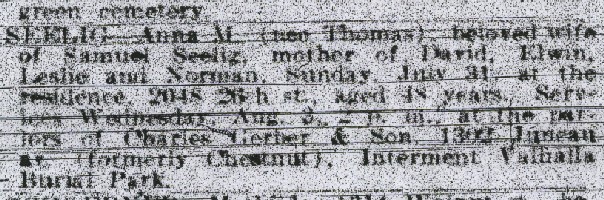 green cemetery
SEELIG Anna M. (nee Thomas), beloved wife
of Samuel Seelig, mother of David, Elwin,
Leslie and Norman, Sunday, July 31, at the
residence, 2048 26th st., aged 48 years. Serv-
Wednesday, Aug. 3, 2 p. m., at the par-
lors of Charles Gerber & Son, Juneau
av. (formerly Chestnut). Interment Valhalla
Burial Park.